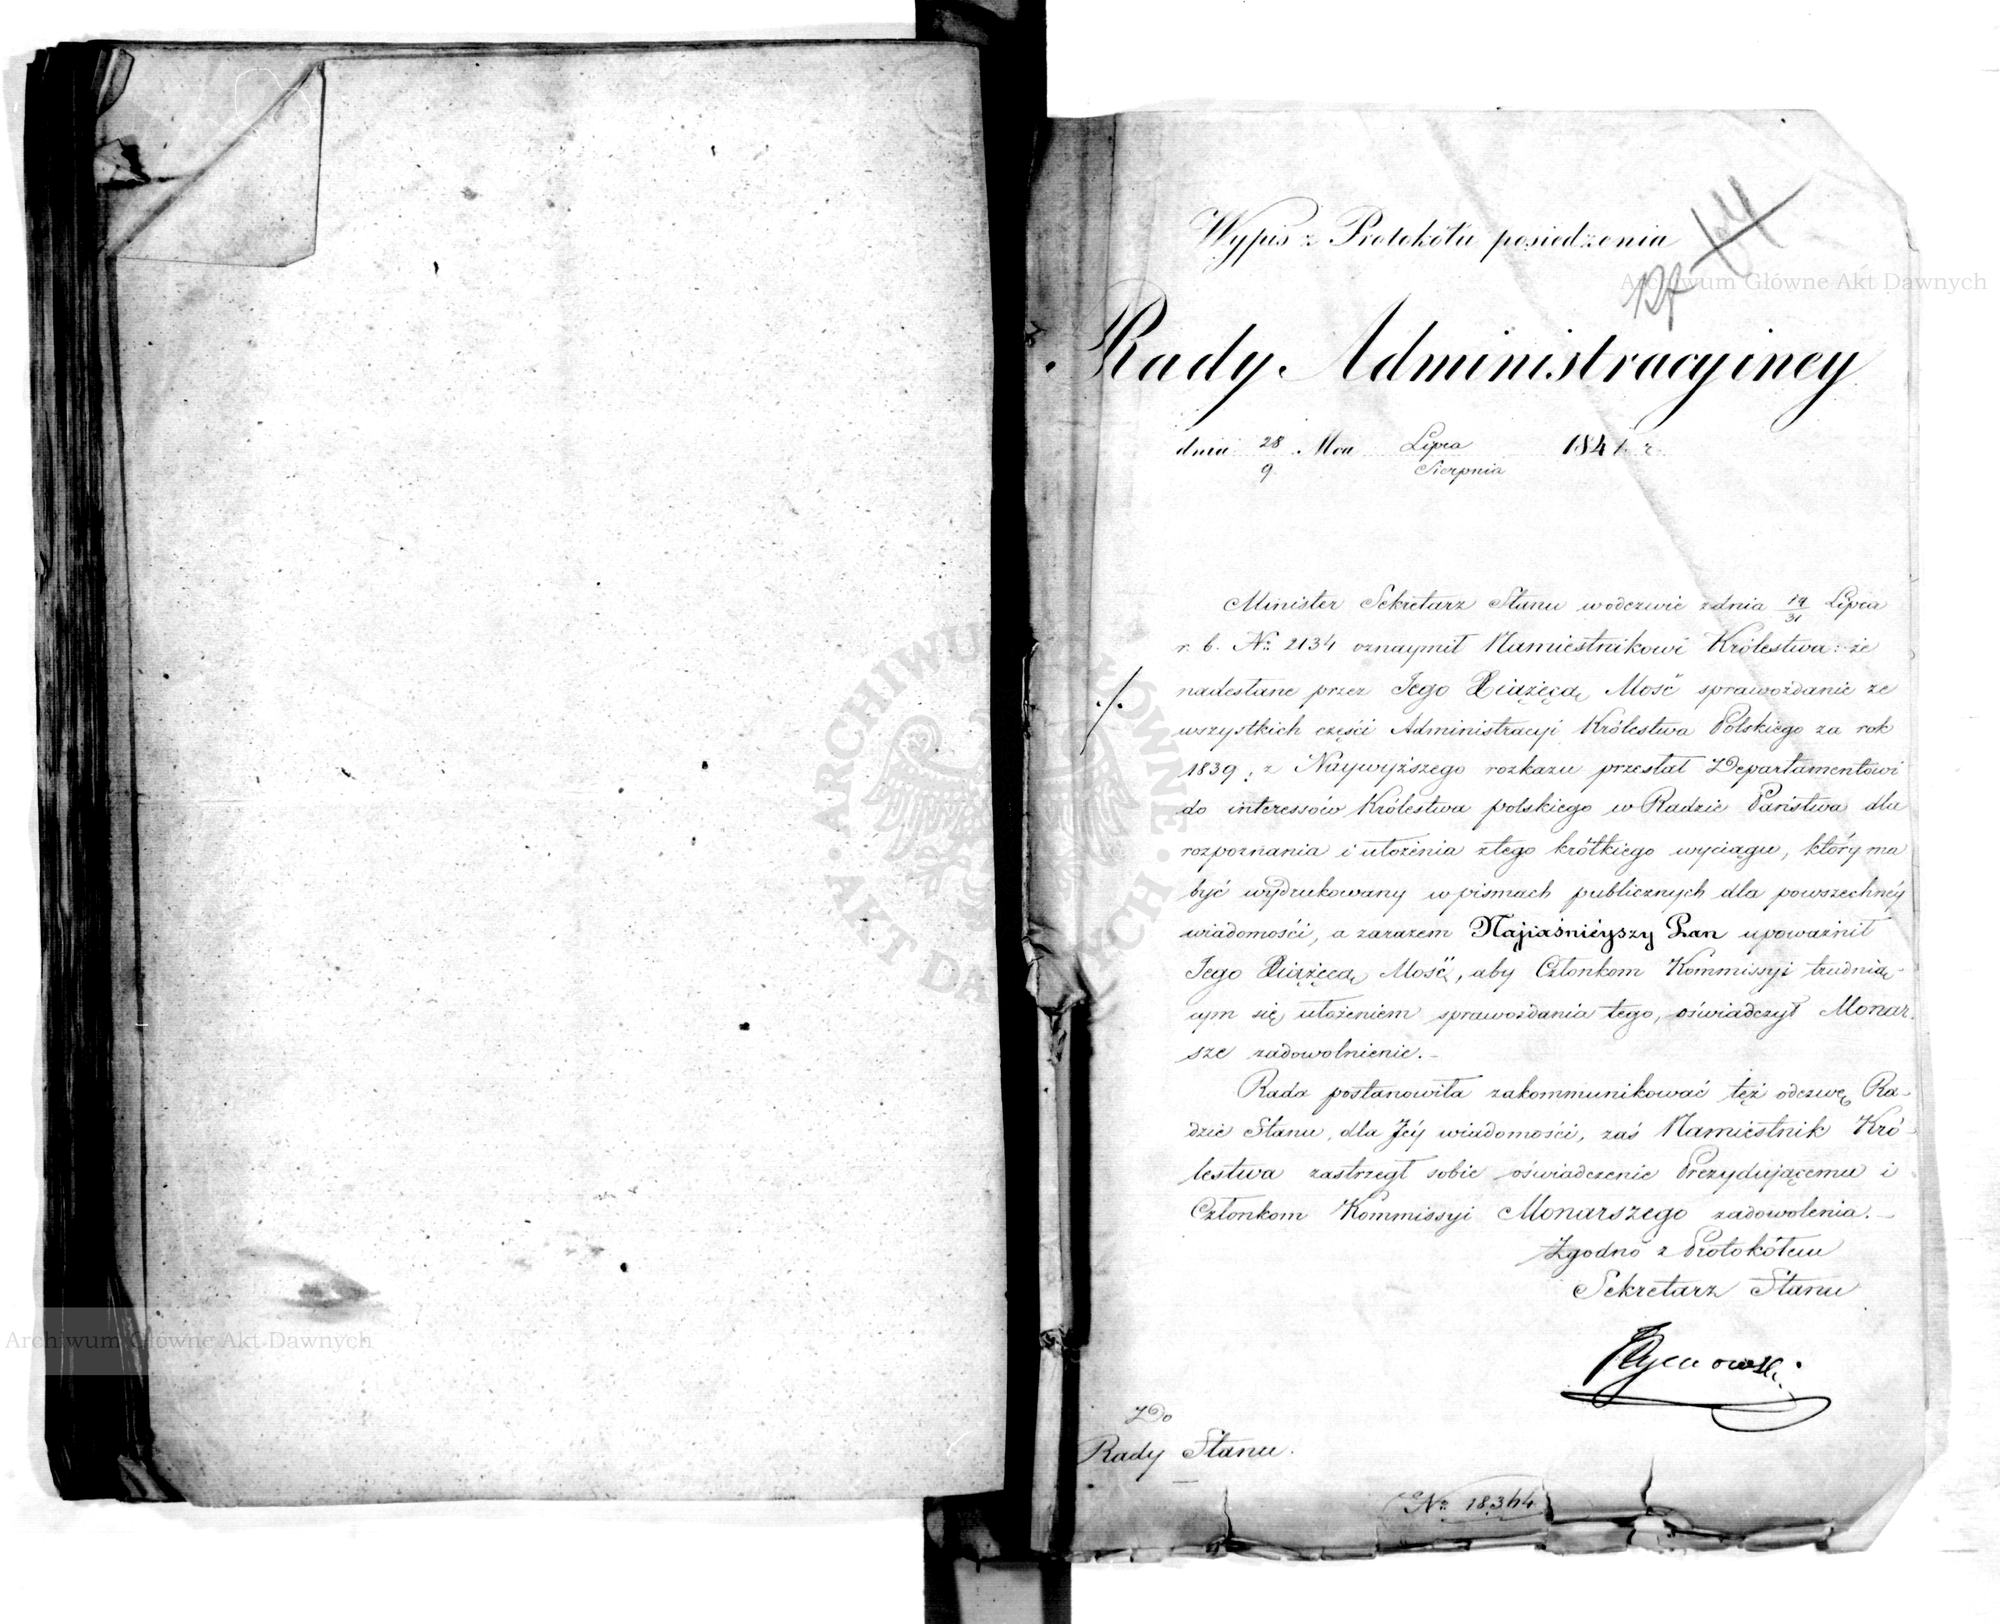 Wypis z Protokółu posiedzenia
Archiwum Główne Akt Dawnych
Rady Administracyiney
dnia 28 Mca Lipca 1841 r.
9 Sierpnia
Minister Sekretarz Stanu w odezwie z dnia 19/31 Lipca
r. b. Nr. 2134 oznaymił Namiestnikowi Królestwa: że
nadesłane przez Jego Xiążęcą Mość sprawozdanie ze
wszystkich części Administracyi Królestwa Polskiego za rok
1839, z Naywyższego rozkazu przesłał Departamentowi
do interessów Królestwa polskiego w Radzie Państwa dla
rozpoznania i ułożenia z tego krótkiego wyciągu, który ma
być wydrukowany w pismach publicznych dla powszechnéy
wiadomości, a zarazem Najiaśniéyszy Pan upoważnił
Jego Xiążęcą Mość, aby Członkom Kommissyi trudnią-
cym się ułożeniem sprawozdania tego, oświadczył Monar-
sze zadowolnienie.-
Rada postanowiła zakommunikować też odezwę Ra-
dzie Stanu, dla Jéy wiadomości, zaś Namiestnik Kró-
lestwa zastrzegł sobie oświadczenie Prezydującemu i
Członkom Kommissyi Monarszego zadowolenia.-
Zgodno z Protokółem
Sekretarz Stanu
Do
Rady Stanu.
ARCHIWUM GŁÓWNE AKT DAWNYCH
Archiwum Główne Akt Dawnych